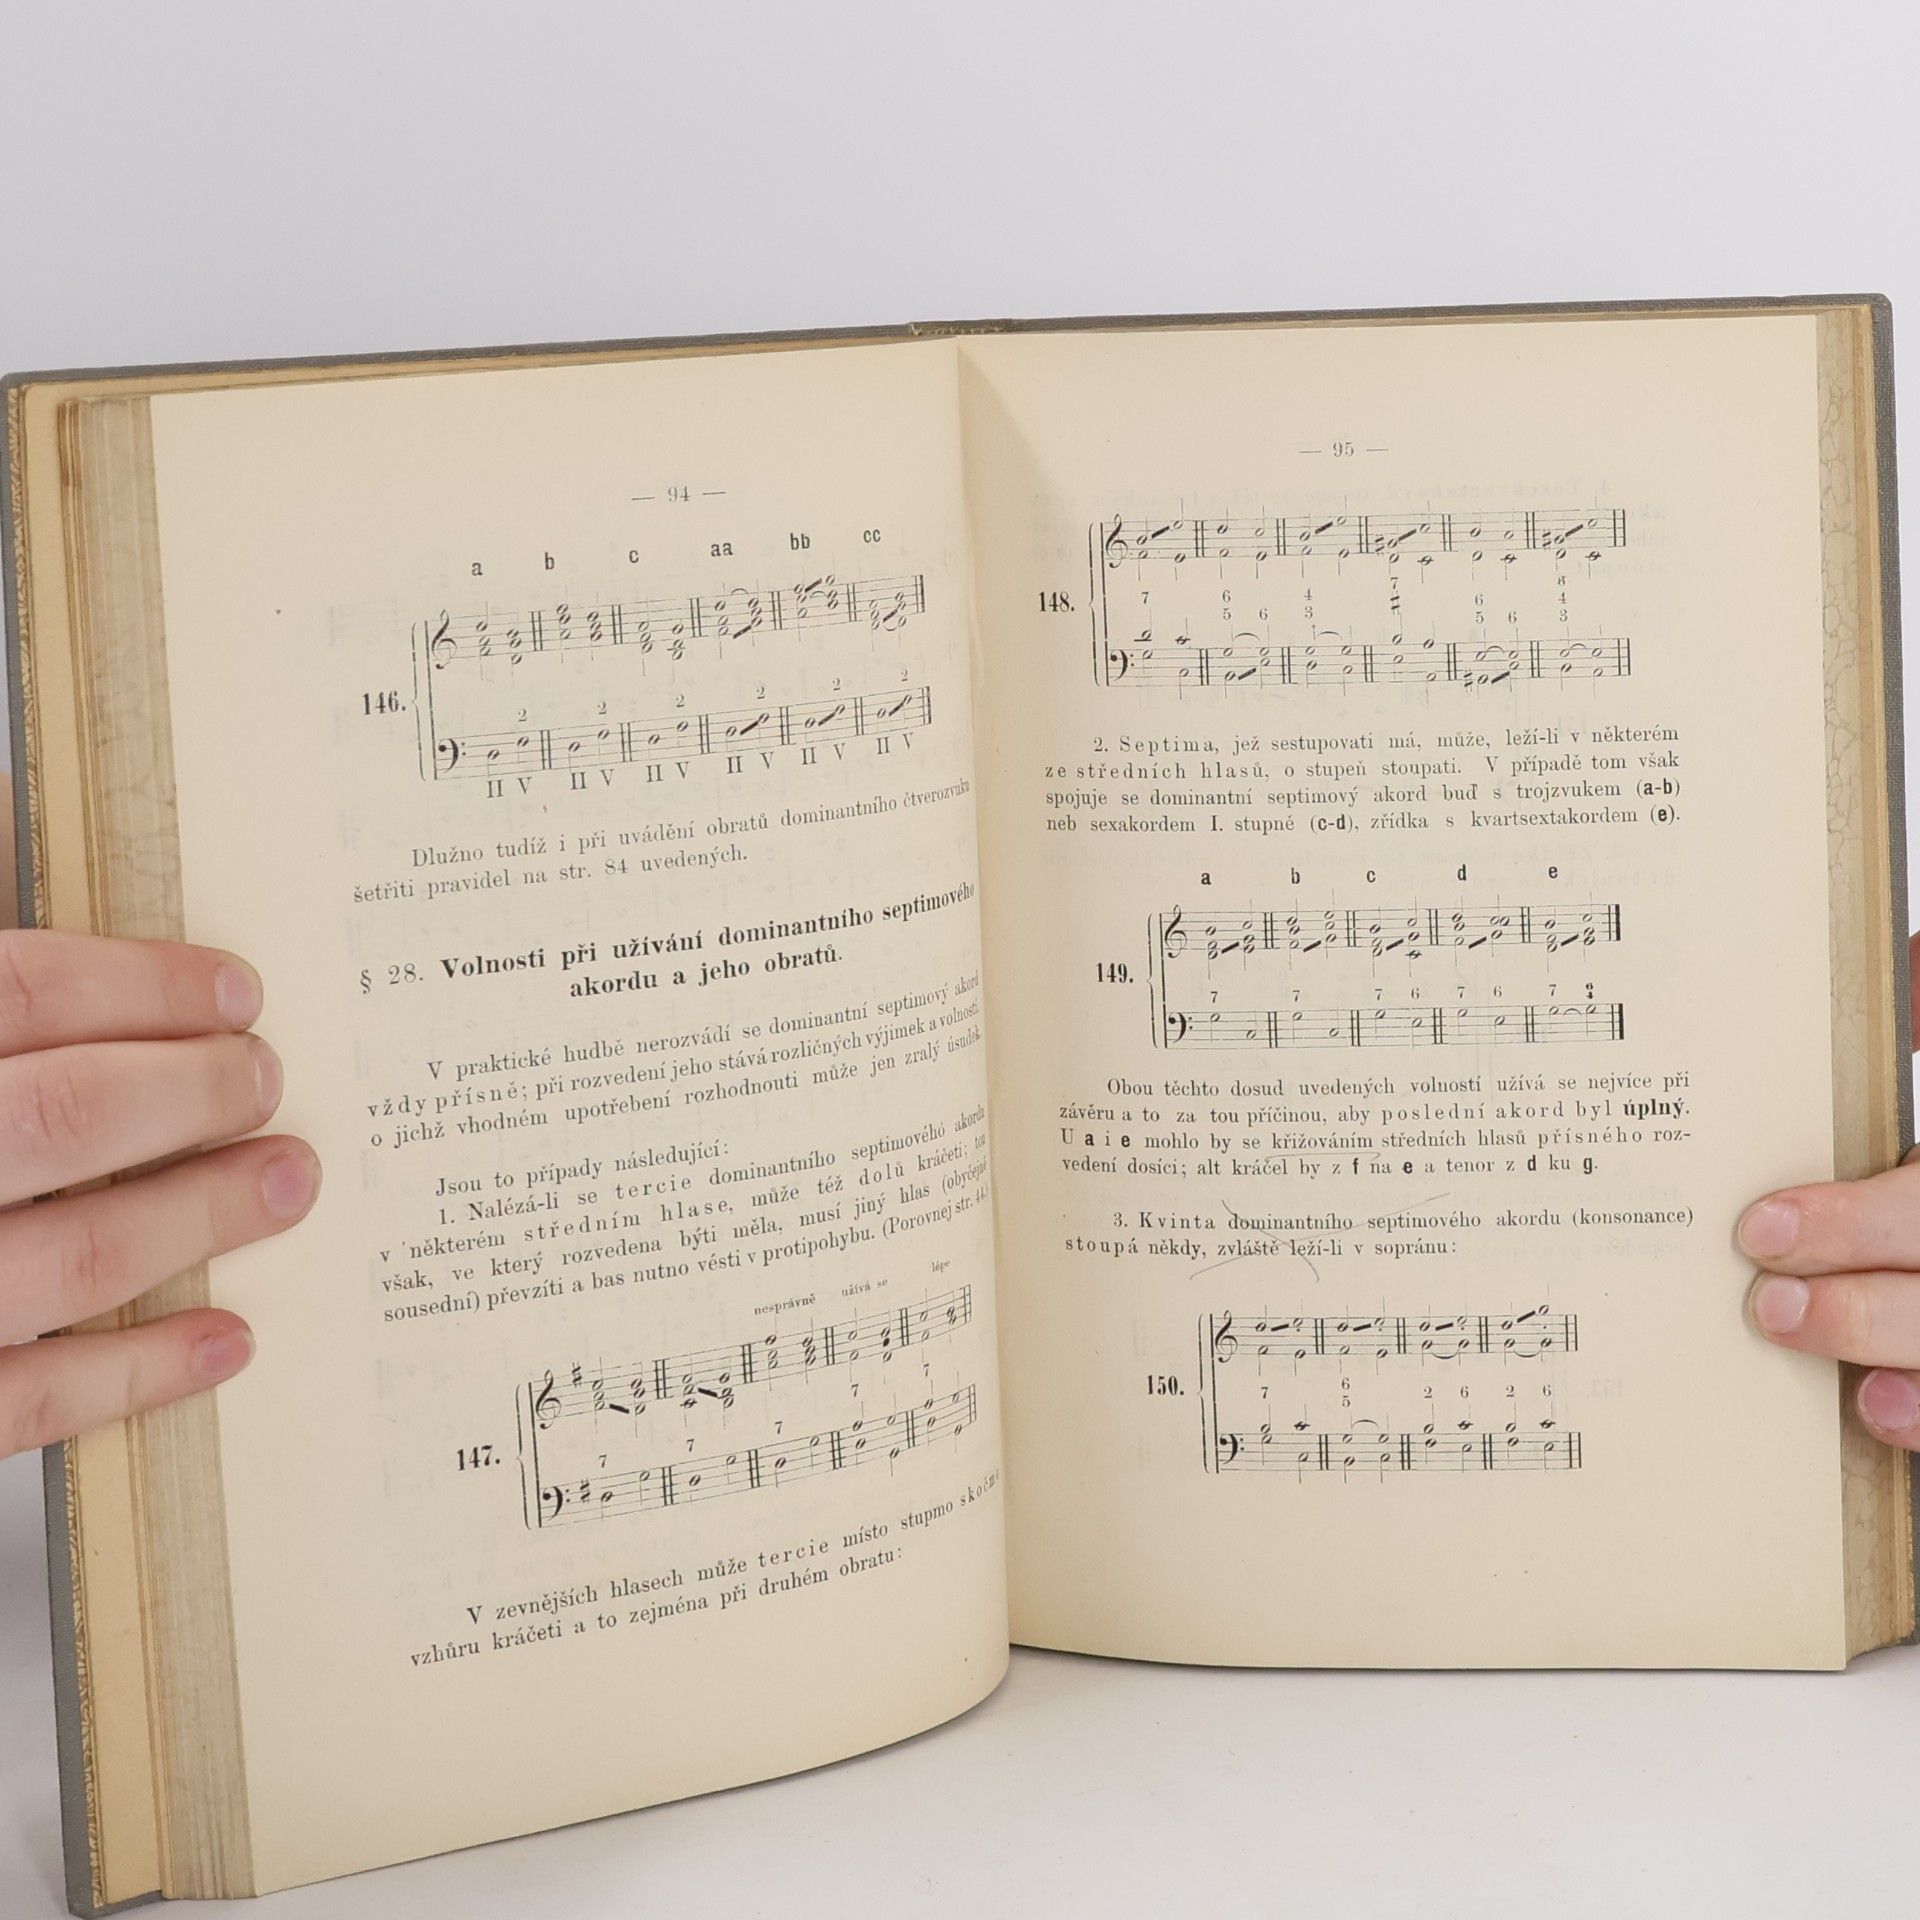 — 94 —
a b c aa bb cc
146.
2 2 2 2 2 2
II V II V II V II V II V II V
Dlužno tudíž i při uvádění obratů dominantního čtverozvuku
šetřiti pravidel na str. 84 uvedených.
§ 28. Volnosti při užívání dominantního septimového
akordu a jeho obratů.
V praktické hudbě nerozvádí se dominantní septimový akord
vždy přísně; při rozvedení jeho stává rozličných výjimek a volností,
o jichž vhodném upotřebení rozhodnouti může jen zralý úsudek.
Jsou to případy následující:
1. Nalézá-li se tercie dominantního septimového akordu
v některém středním hlase, může též dolů kráčeti; ton
však, ve který rozvedena býti měla, musí jiný hlas (obyčejně
sousední) převzíti a bas nutno vésti v protipohybu. (Porovnej str. 44.)
nesprávně užívá se lépe
147.
7 7 7 7 7
V zevnějších hlasech může tercie místo stupmo skočmo
vzhůru kráčeti a to zejména při druhém obratu:
— 95 —
148.
7 6 5 6 4 3 7 6 5 6 6 4 3
2. Septima, jež sestupovati má, může, leží-li v některém
ze středních hlasů, o stupeň stoupati. V případě tom však
spojuje se dominantní septimový akord buď s trojzvukem (a-b)
neb sexakordem I. stupně (c-d), zřídka s kvartsextakordem (e).
a b c d e
149.
7 7 7 6 7 6 7 6 4
Obou těchto dosud uvedených volností užívá se nejvíce při
závěru a to za tou příčinou, aby poslední akord byl úplný.
U a i e mohlo by se křižováním středních hlasů přísného roz-
vedení dosíci; alt kráčel by z f na e a tenor z d ku g.
3. Kvinta dominantního septimového akordu (konsonance)
stoupá někdy, zvláště leží-li v sopránu:
150.
7 6 5 2 6 2 6